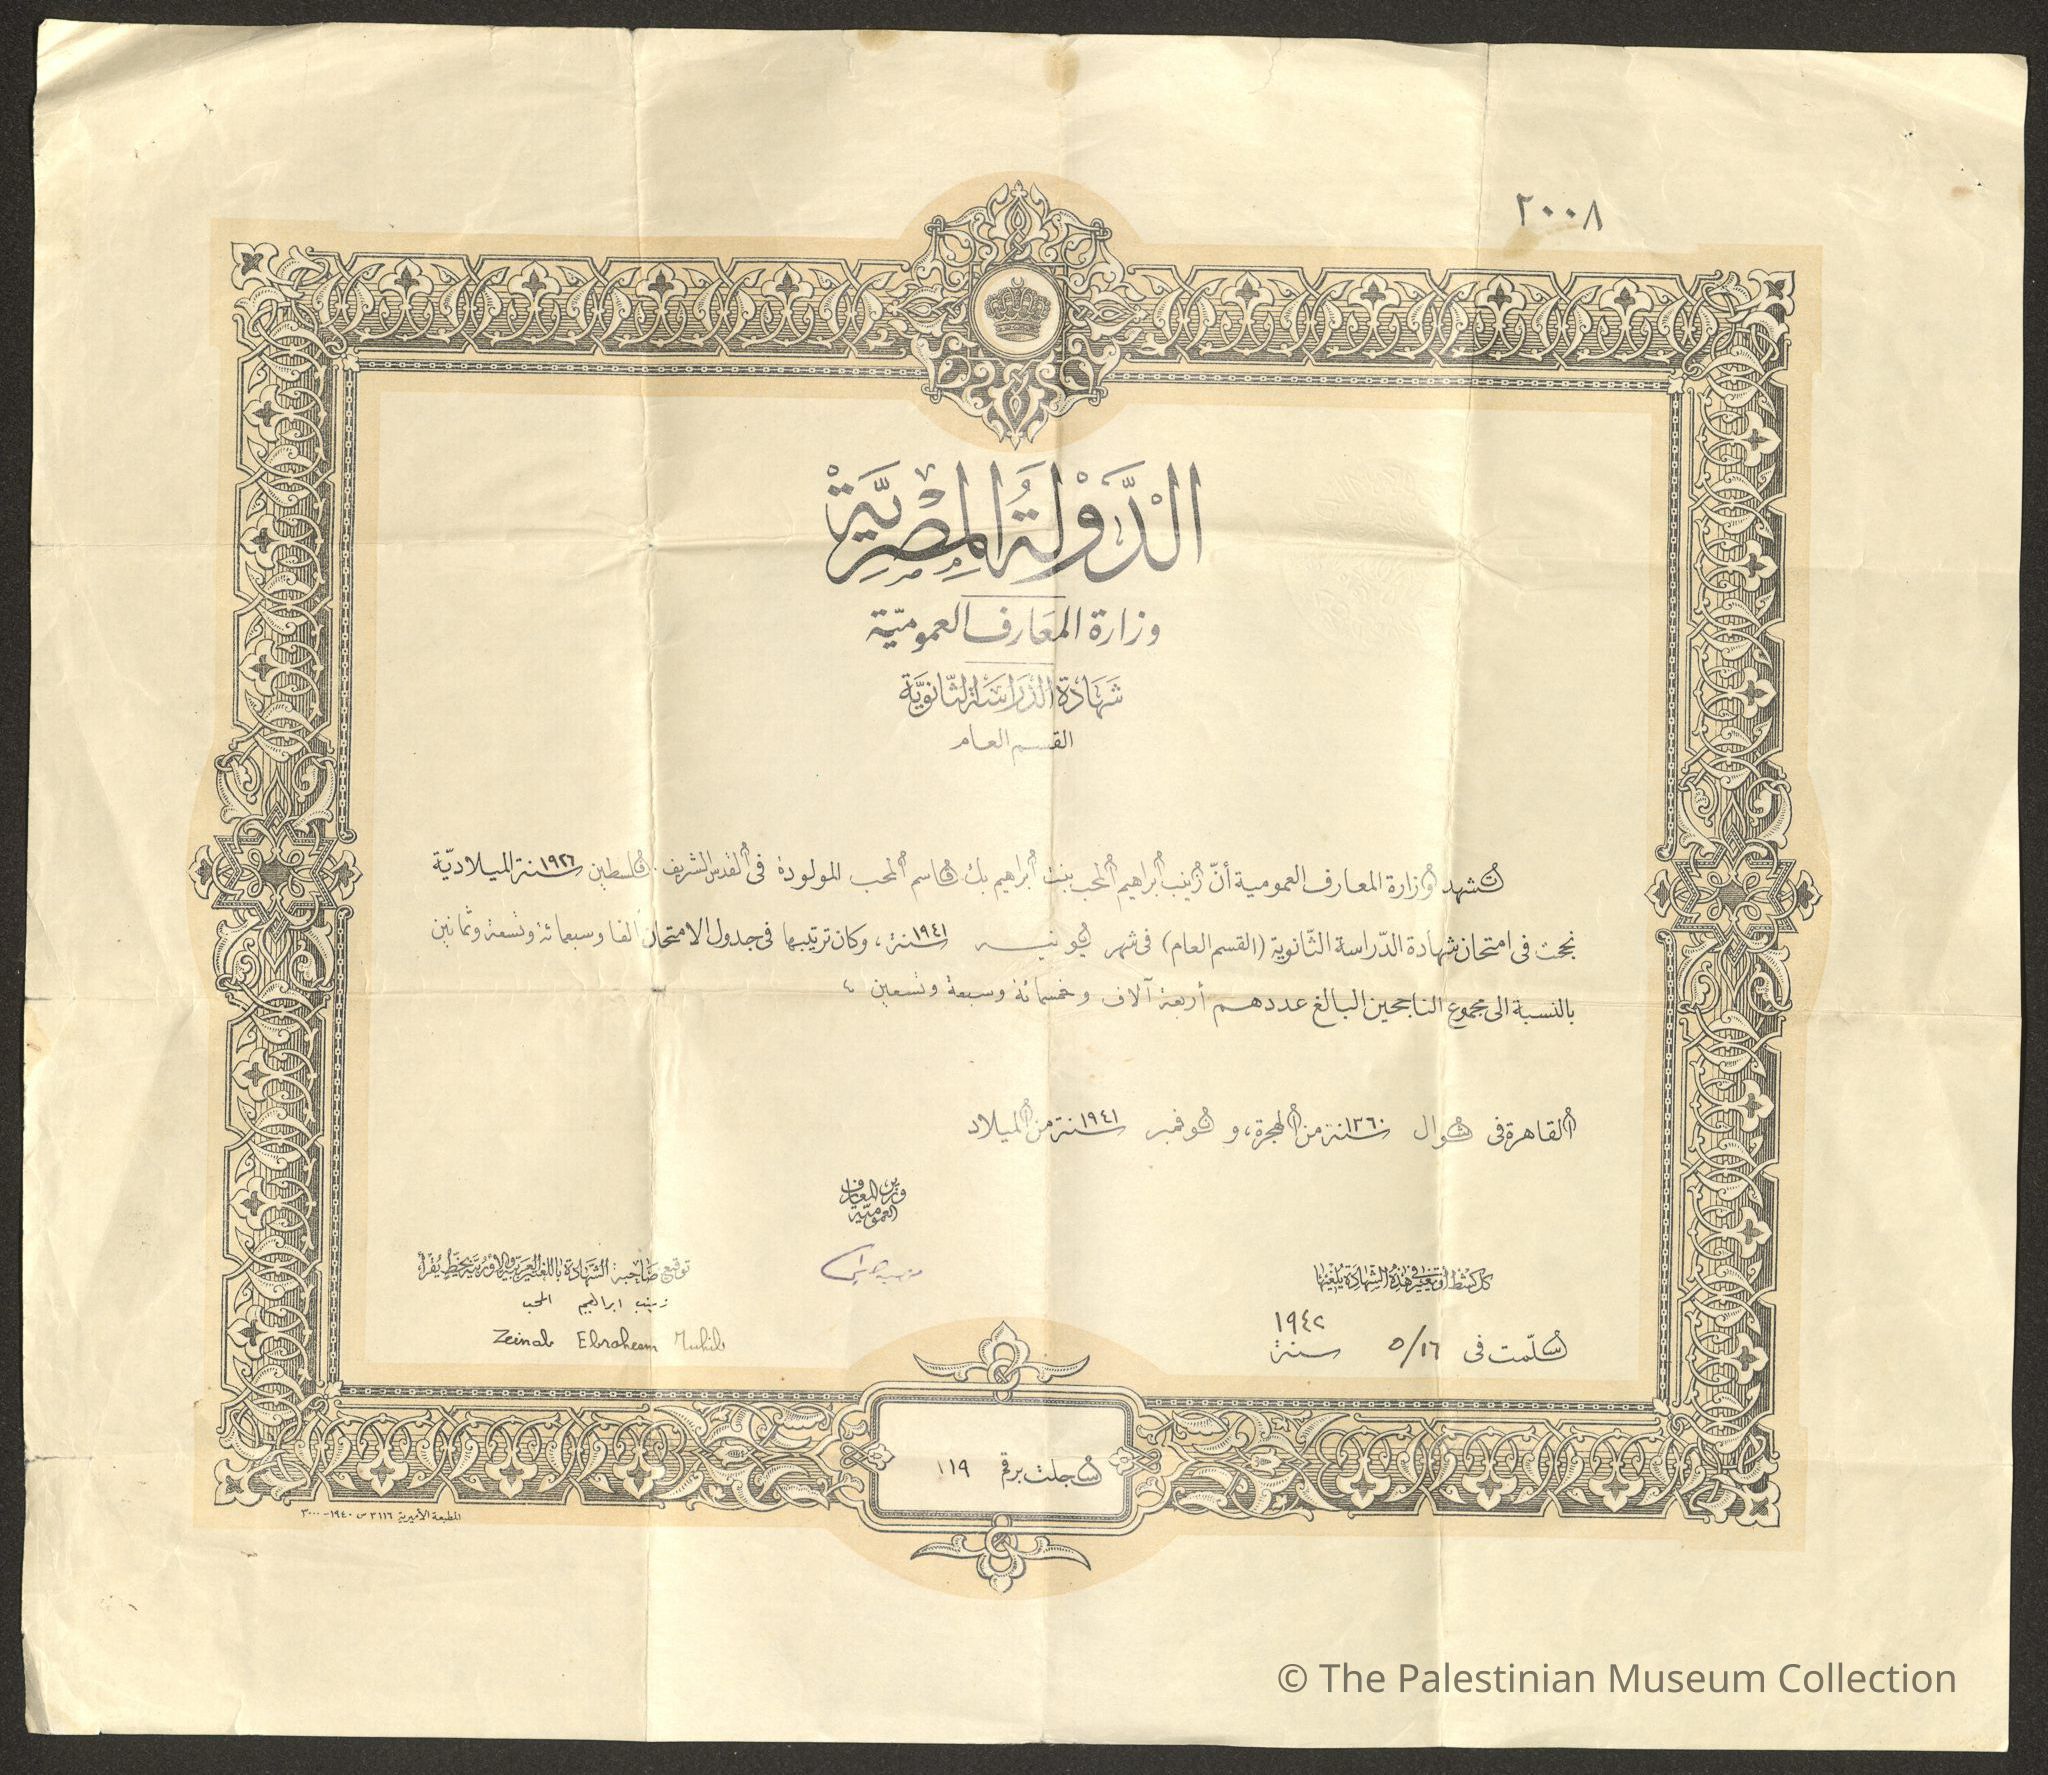 ٢٠٠٨
الدَّوْلَةُ المِصْرِيَّة
وزارة المعَارف العموميّة
شَهَادَة الدّرَاسَة الثّانَوِيَّة
القسم العام
تشهد وزارة المعارف العمومية أنّ زينب ابراهيم المحب بنت ابراهيم بك قاسم المحب المولودة فى القدس الشريف . فلسطين سنة ١٩٢٦ الميلاديّة
نجحت فى امتحان شهادة الدّراسة الثّانوية (القسم العام) فى شهر يونيــه سنة ١٩٤١، وكان ترتيبها فى جدول الامتحان الفا وسبعمائة وتسعة وثمانين
بالنسبة الى مجموع الناجحين البالغ عددهم أربعة آلاف وخمسمائة وسبعة وتسعين
القاهرة فى شوال سنة ١٣٦٠ من الهجرة، و نوفمبر سنة ١٩٤١ من الميلاد
وزير المعارف
العموميّة
توقيع صَاحبة الشَهَادَة باللغة العَربيّة والأوربيّة بخَطٍّ يُقْرَأ
زينب ابراهيم المحب
Zeinab Ebraheem Muhib
كل كشط أو تغيير فى هذه الشهادَة يُلغيْها
سُلّمت فى ٥/١٦ سنة ١٩٤٢
سُجلت برقم ١١٩
المطبعة الأميرية ٣١١٦ س ١٩٤٠-٣٠٠٠
© The Palestinian Museum Collection